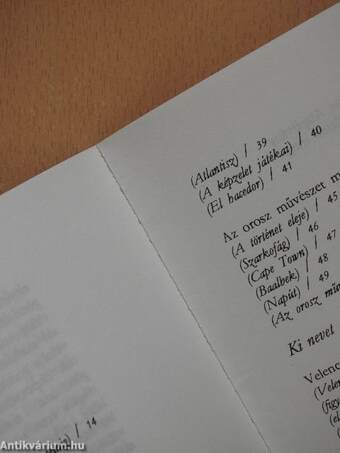 (Atlantisz) / 39
(A képzelet játékai) / 40
(El hacedor) / 41
Az orosz művészet
(A történet eleje) / 45
(Szarkofág) / 46
(Cape Town) / 47
(Baalbek) / 48
(Napút) / 49
(Az orosz
Ki nevet
/ 14
Antikvárium.hu